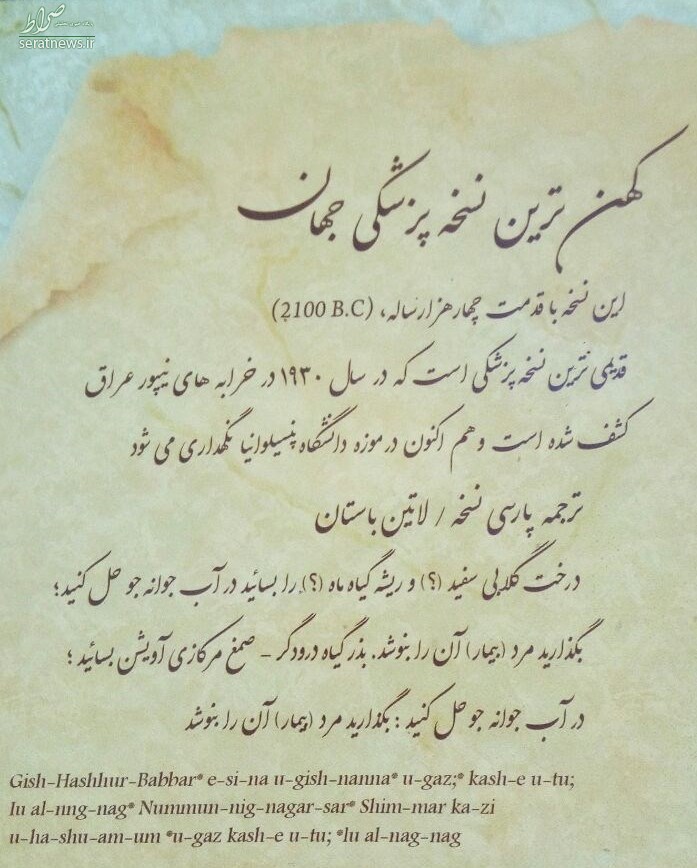 صراط
seratnews.ir
کهن ترین نسخه پزشکی جهان
این نسخه با قدمت چهار هزار ساله، (2100 B.C)
قدیمی ترین نسخه پزشکی است که در سال ۱۹۳۰ در خرابه های نیپور عراق
کشف شده است و هم اکنون در موزه دانشگاه پنسیلوانیا نگهداری می شود
ترجمه پارسی نسخه / لاتین باستان
درخت گلابی سفید (؟) و ریشه گیاه ماه (؟) را بسائید در آب جوانه جو حل کنید؛
بگذارید مرد (بیمار) آن را بنوشد. بذر گیاه درودگر - صمغ مرکازی آویشن بسائید ؛
در آب جوانه جو حل کنید : بگذارید مرد (بیمار) آن را بنوشد
Gish-Hashhur-Babbar* e-si-na u-gish-nanna* u-gaz;* kash-e u-tu;
lu al-nng-nag* Nummun-nig-nagar-sar* Shim-mar ka-zi
u-ha-shu-am-um *u-gaz kash-e u-tu; *lu al-nag-nag